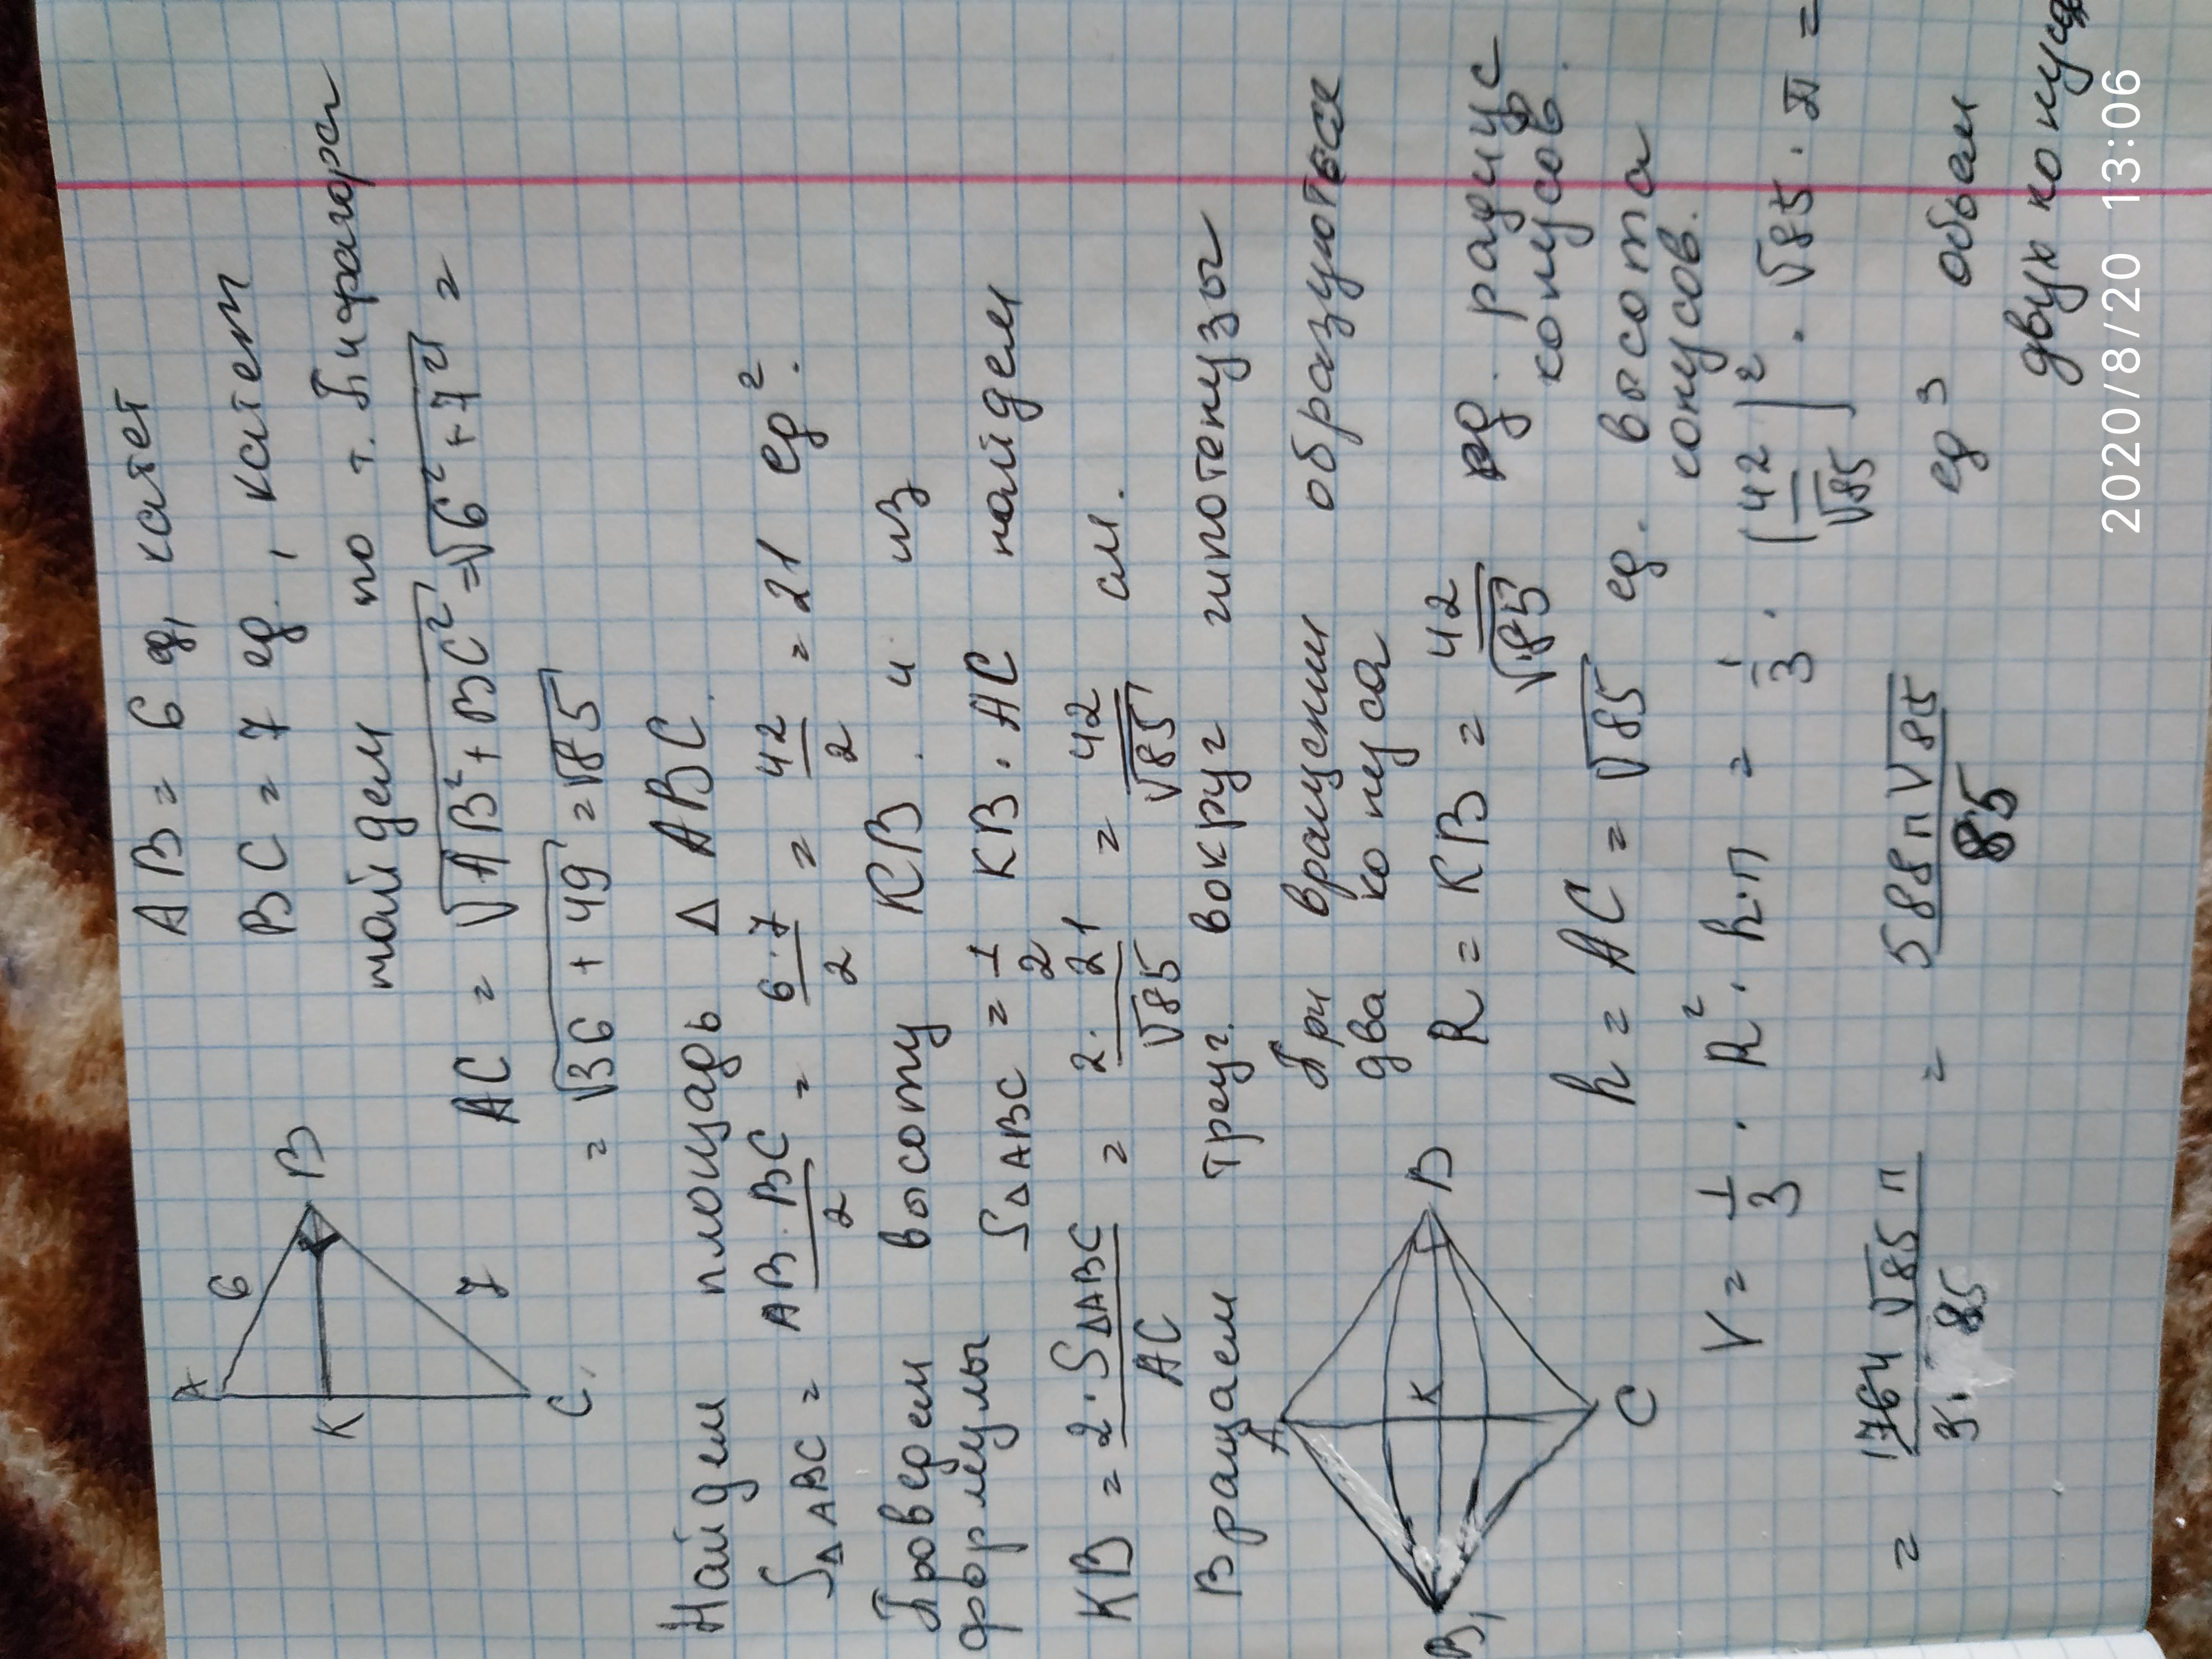 AB = 6 ед, катет
BC = 7 ед., катет
найдем по т. Пифагора
AC = √AB²+BC² = √6²+7² =
= √36+49 = √85
A
6
B
K
7
C
Найдем площадь Δ ABC.
SΔABC = AB·BC/2 = 6·7/2 = 42/2 = 21 ед².
Проведем высоту KB. и из
формулы SΔABC = 1/2 KB·AC найдем
KB = 2·SΔABC/AC = 2·21/√85 = 42/√85 см.
Вращаем треуг. вокруг гипотенузы
При вращении образуются
два конуса
A
B
K
B₁
C
R = KB = 42/√85 ед. радиус
конусов.
h = AC = √85 ед. высота
конусов.
V = 1/3 · R² · h·π = 1/3 · (42/√85)² · √85 · π =
= 1764√85 π/3·85 = 588π√85/85 ед³ объем
двух конусов
2020/8/20 13:06